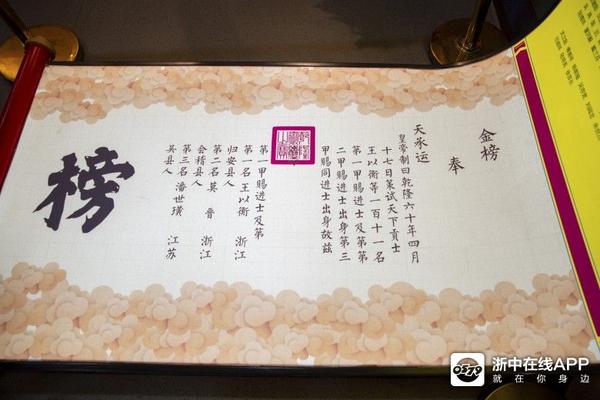 金榜
奉
天承运
皇帝制曰乾隆六十年四月
十七日策试天下贡士
王以衔等一百十一名
第一甲赐进士及第第
二甲赐进士出身第三
甲赐同进士出身故兹
第一甲赐进士及第
第一名王以衔 浙江
归安县人
第二名莫 晋 浙江
会稽县人
第三名潘世璜 江苏
吴县人
榜
浙中在线APP
就在你身边